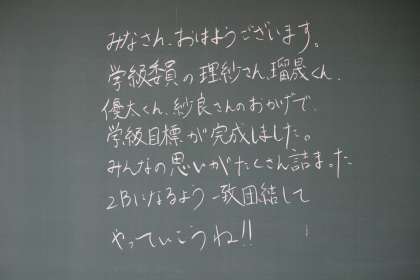 みなさん、おはようございます。
学級委員の理紗さん、瑠晟くん、
優太くん、紗良さんのおかげで、
学級目標が完成しました。
みんなの思いがたくさん詰まった
2Bになるよう一致団結して
やっていこうね!!